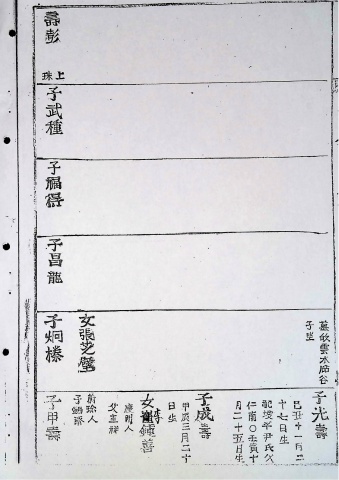 壽彭
上珠
子武種
子福得
子昌龍
墓歙雲水局谷
子坐
女張芝
子炯樁
子光壽
己丑十一月二
十七日生
配坡平尹氏父
仁甯〇壬寅十
月二十五日生
子成壽
甲辰三月二十
日生
女
鍾善
慶州人
父
人
子
子甲壽